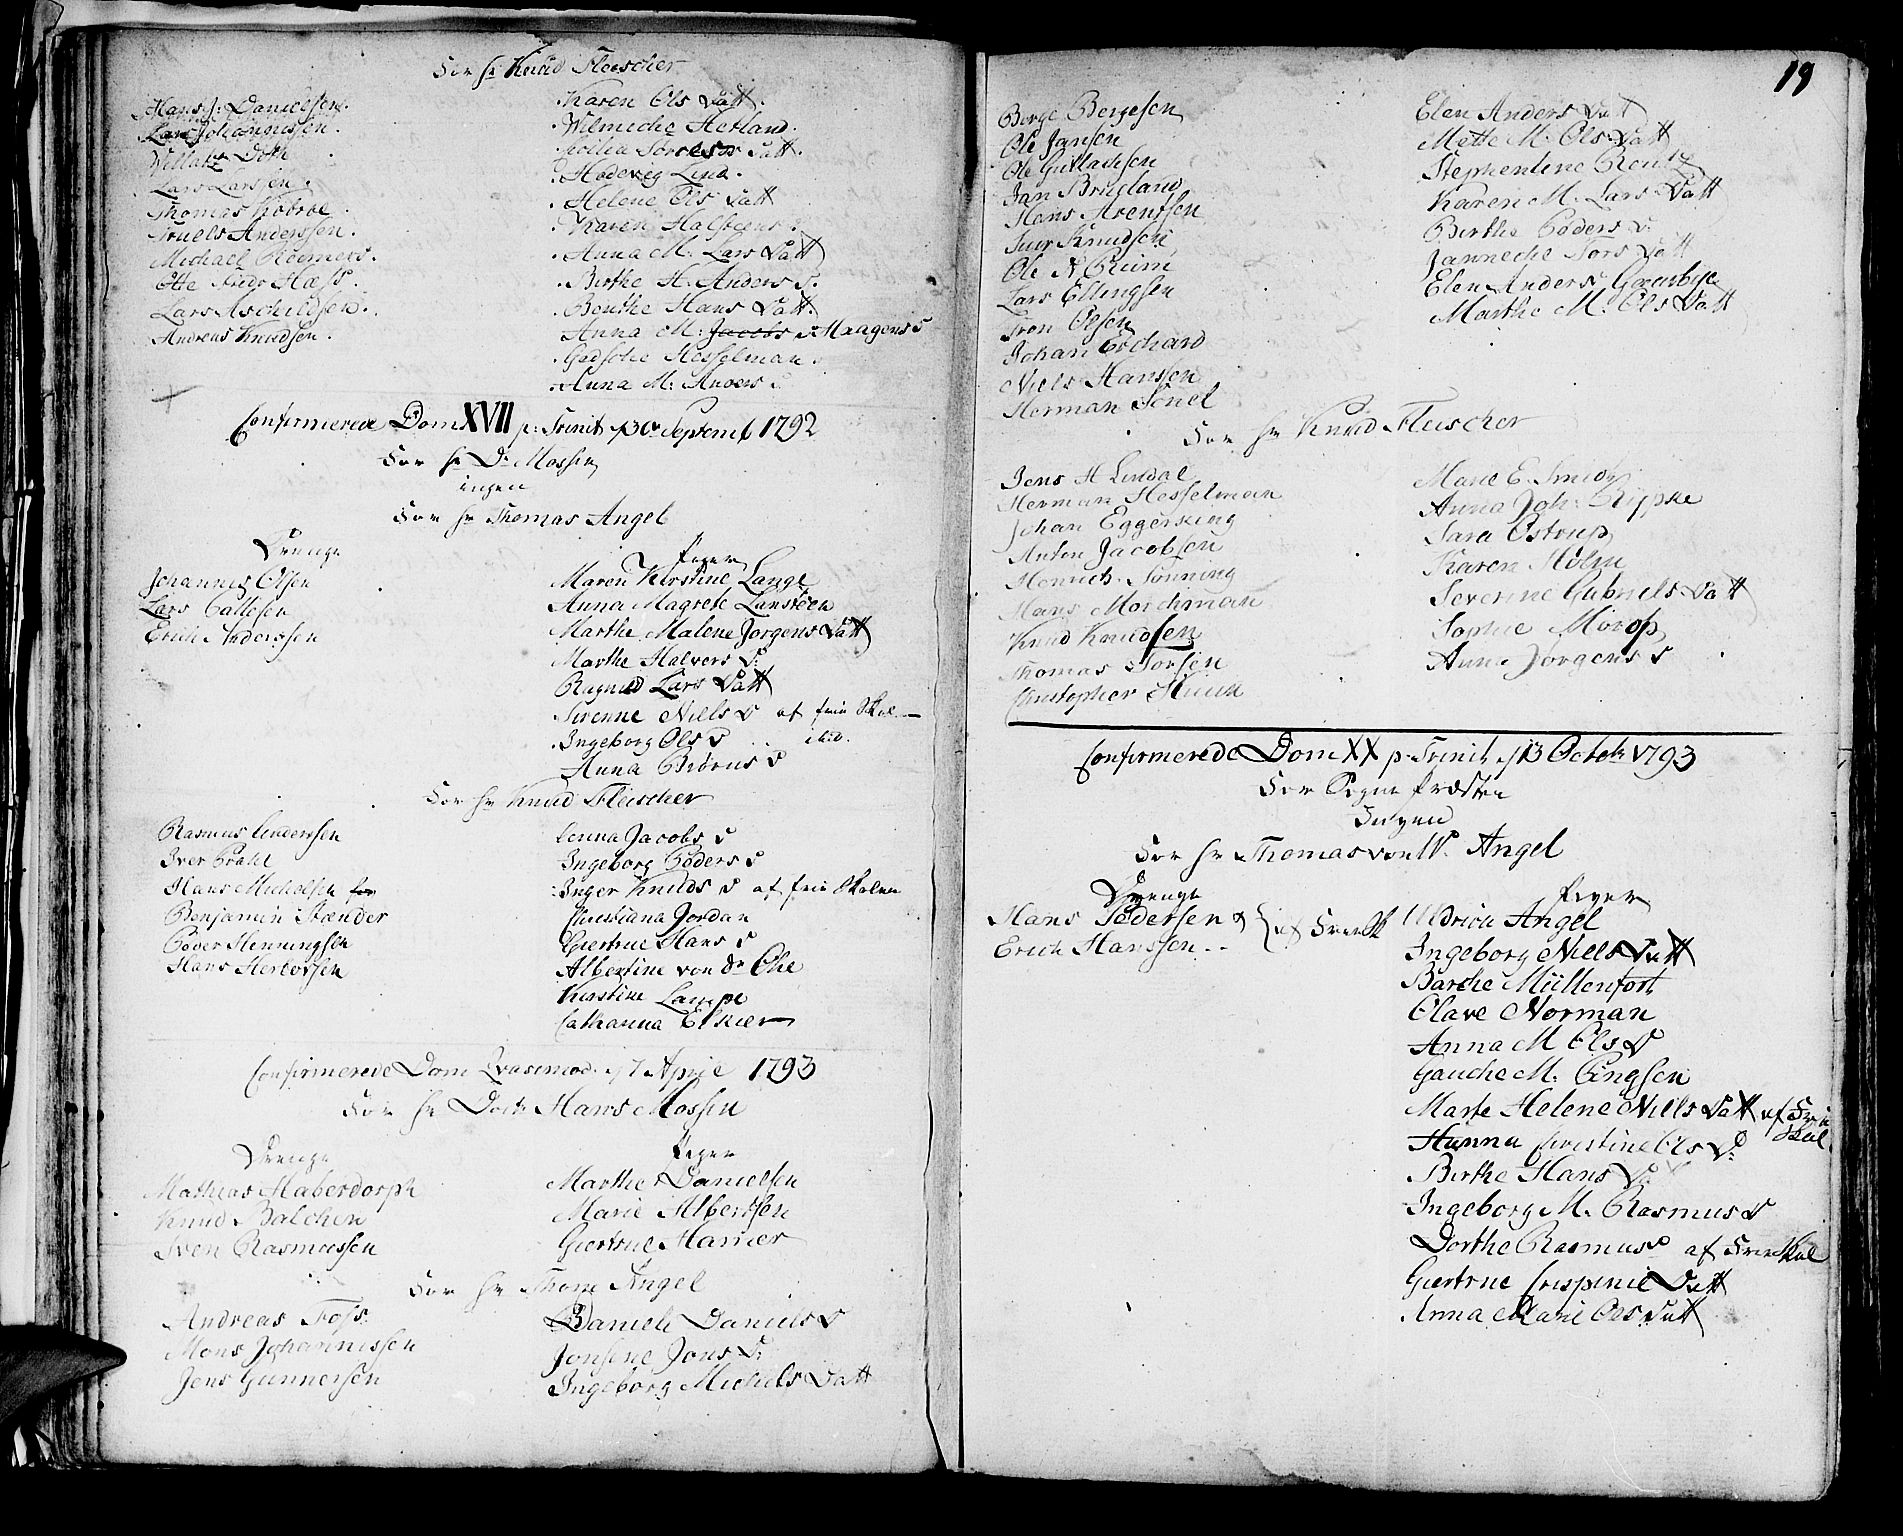 For Hr Knud Fleischer
Hans J: Danielsen.
Lars Johannissen.
Villatz Doth
Lars Larssen.
Thomas Kobroe.
Truels Anderssen.
Michael Roemers.
Otte Fridr Hæss.
Lars Aschildsen.
Andreas Knudsen.
Karen Ols Datt.
Wilmeche Hetland.
Hedeveg Lind.
Helene Ols Datt
Karen Halsteens
Anna M: Lars Datt
Birthe H. Anders D.
Benthe Hans Datt.
Anna M: Jacobs D Maagens D
Gedsche Hesselman.
Anna M: Anders D
Confirmerede Dom XVII p: Trinit. d 30te Septemb 1792
For Hr Dr Mossin
ingen
For Hr Thomas Angel
Drenge
Johannes Olsen
Lars Callesen
Erich Anderssen
Piger
Maren Kirstine Lange
Anna Magrete Lansteen
Marthe Malene Jorgens Datt
Marthe Halvers D:
Ragnild Lars Datt
Sirenne Niels D af frie Skol
Ingeborg Ols D ibid.
Anna Biørns D
For Hr Knud Fleischer
Rasmus Anderssen
Iver Prahl
Hans Michelsen
Benjamin Stænder
Peder Henningsen
Hans Herlofsen
Anna Jacobs D
Ingeborg Peders D
Inger Knuds D af frie Skolen
Christiana Jordan
Giertrue Hans D
Albertine von dr Ohe
Kirstine Lampe
Catharina Elkier
Confirmerede Dom Qvasimod: d 7 April 1793
For Hr Doctr Hans Mossin
Drenge
Mathias Haberdorph
Knud Balchen
Sven Rasmussen
Piger
Marthe Danielsen
Marie Albertsen
Giertrue Harmer
For Hr Thom Angel
Andreas Foss
Mons Johannissen
Jens Gunnersen
Daniele Daniels D
Jonsine Jons D:
Ingeborg Michels Datt
19
Børge Børgesen
Ole Jansen
Ole Gullachsen
Jan Brigland
Hans Arentsen
Siur Knudsen
Ole N Reimi
Lars Ellingsen
Iron Olsen
Johan Erchard
Niels Hanssen
Herman Sonel
Elen Anders Datt
Mette M: Ols Datt
Stephentine Reutz
Karen M. Lars Datt
Birthe Peders D:
Janneche Tors Datt
Elen Anders Gaarbye
Marthe M. Ols Datt
For Hr Knud Fleischer
Jens H Lindal
Herman Hesselman
Johan Eggersking
Anton Jacobsen
Henrich Sonning
Hans Morchman
Knud Knudsen
Thomas Torsen
Christopher Kuuk
Marie E. Smidt
Anna Joh: Rypke
Sara Ostrup
Karen Holm
Severine Gabriels Datt
Sophie Morop
Anna Jorgens D
Confirmerede Dom XX p: Trinit. d 13 Octobr 1793
For Sogne Præsten
Ingen
For Hr Thomas von W. Angel
Drenge
Hans Pedersen
Erich Hanssen
af Frie Sk
Piger
Uldricu Angel
Ingeborg Niels Datt
Barthe Müllenfort
Olave Norman
Anna M Ols D
Gauche M. Pingsen
Marte Helene Niells Datt af Frie Skol
Hanna Christine Ols D:
Birthe Hans D:
Ingeborg M. Rasmus D
Dorthe Rasmus D af Frie Skol
Giertrue Crispinie Datt
Anna Marie Ols Datt